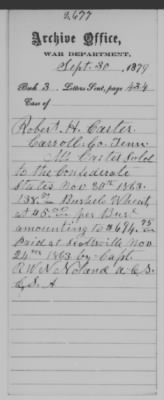 2,677
Archive Office,
WAR DEPARTMENT,
Sept. 30, 1879
Book 3. Letters Sent, page 434
Case of
Robert H. Carter
Carroll Co. Tenn
Mr Carter Sold
to the Confederate
States Nov 20th 1863.
138. Bushels Wheat
at $5.00 per Bus.
amounting to $694.75
Paid at Scottsville Nov
24th 1863 by Capt.
W N Noland A.C.S.
C.S.A